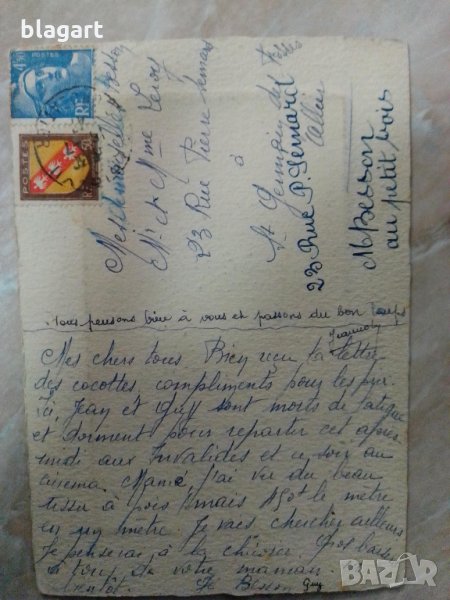 blagart
4,50
POSTES
RF
POSTES
RF
Mesdemoiselles Besson
M. et Mme Leroy
23 Rue Pierre Semard
à
St Germain des
Allier
23 Rue P. Semard
M Besson
au petit bois
Nous pensons bien à vous et passons du bon temps
Mes chers tous Bien reçu la lettre
des cocottes compliments pour les
Ici, Jean et Guy sont morts de fatigue
et dorment pour repartir cet après
midi aux Invalides et ce soir au
cinema. Mamé, j'ai vu du beau
tissu à pois mais le mètre
en 1m9 metre. Je vais chercher ailleurs
Je penserai à la chicorée. Gros baisers
à tous de votre maman.
bientôt. Besson Guy
BAZAR.bg